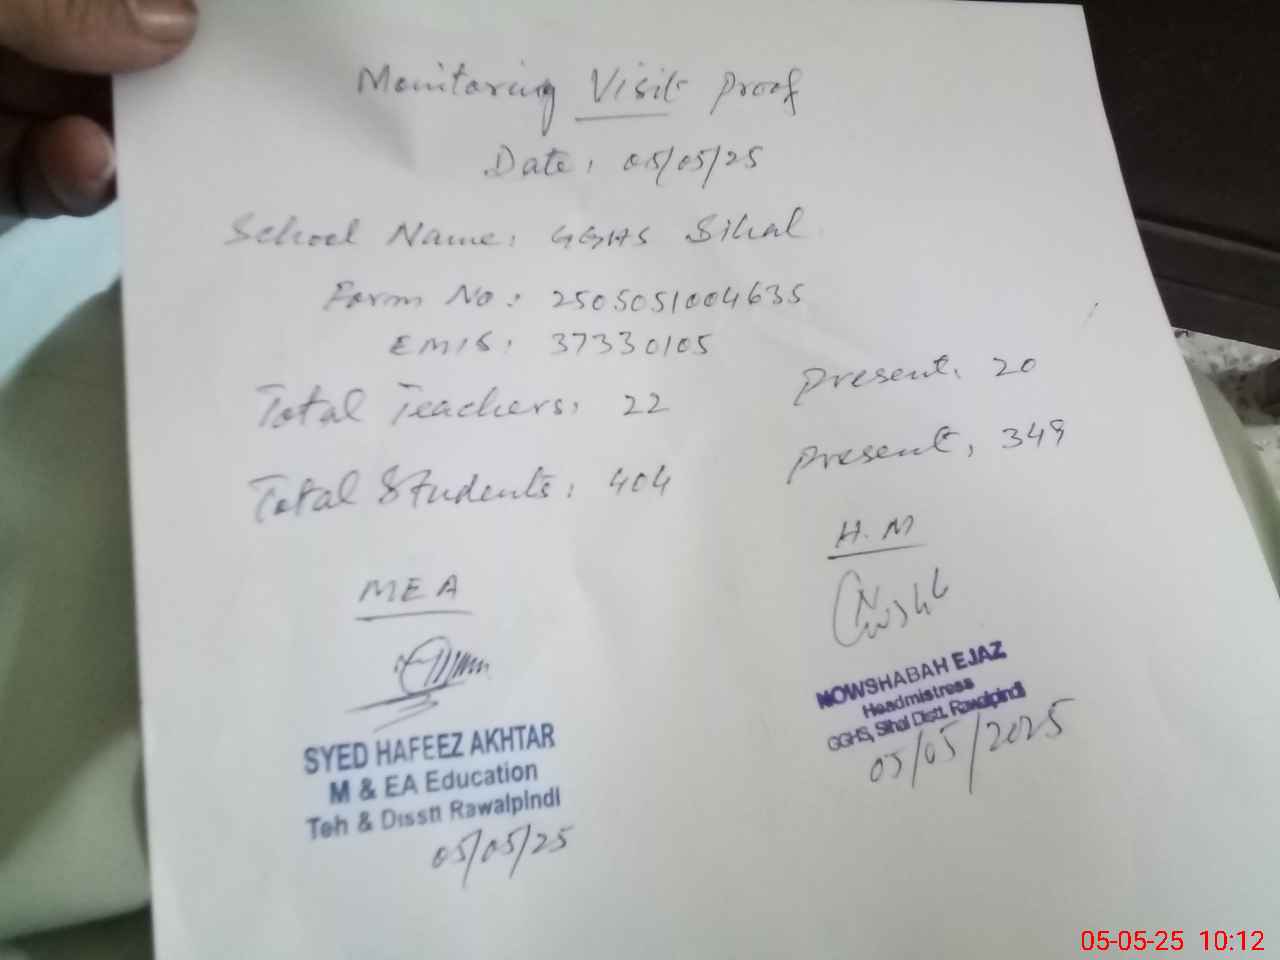 Monitoring Visit Proof
Date: 05/05/25
School Name: GGHS Sihal
Form No: 2505051004635
EMIS: 37330105
Total Teachers: 22 Present: 20
Total Students: 404 Present: 349
MEA
SYED HAFEEZ AKHTAR
M & EA Education
Teh & Disstt Rawalpindi
05/05/25
H.M
NOWSHABAH EJAZ
Headmistress
GGHS, Sihal Distt. Rawalpindi
05/05/2025
05-05-25 10:12